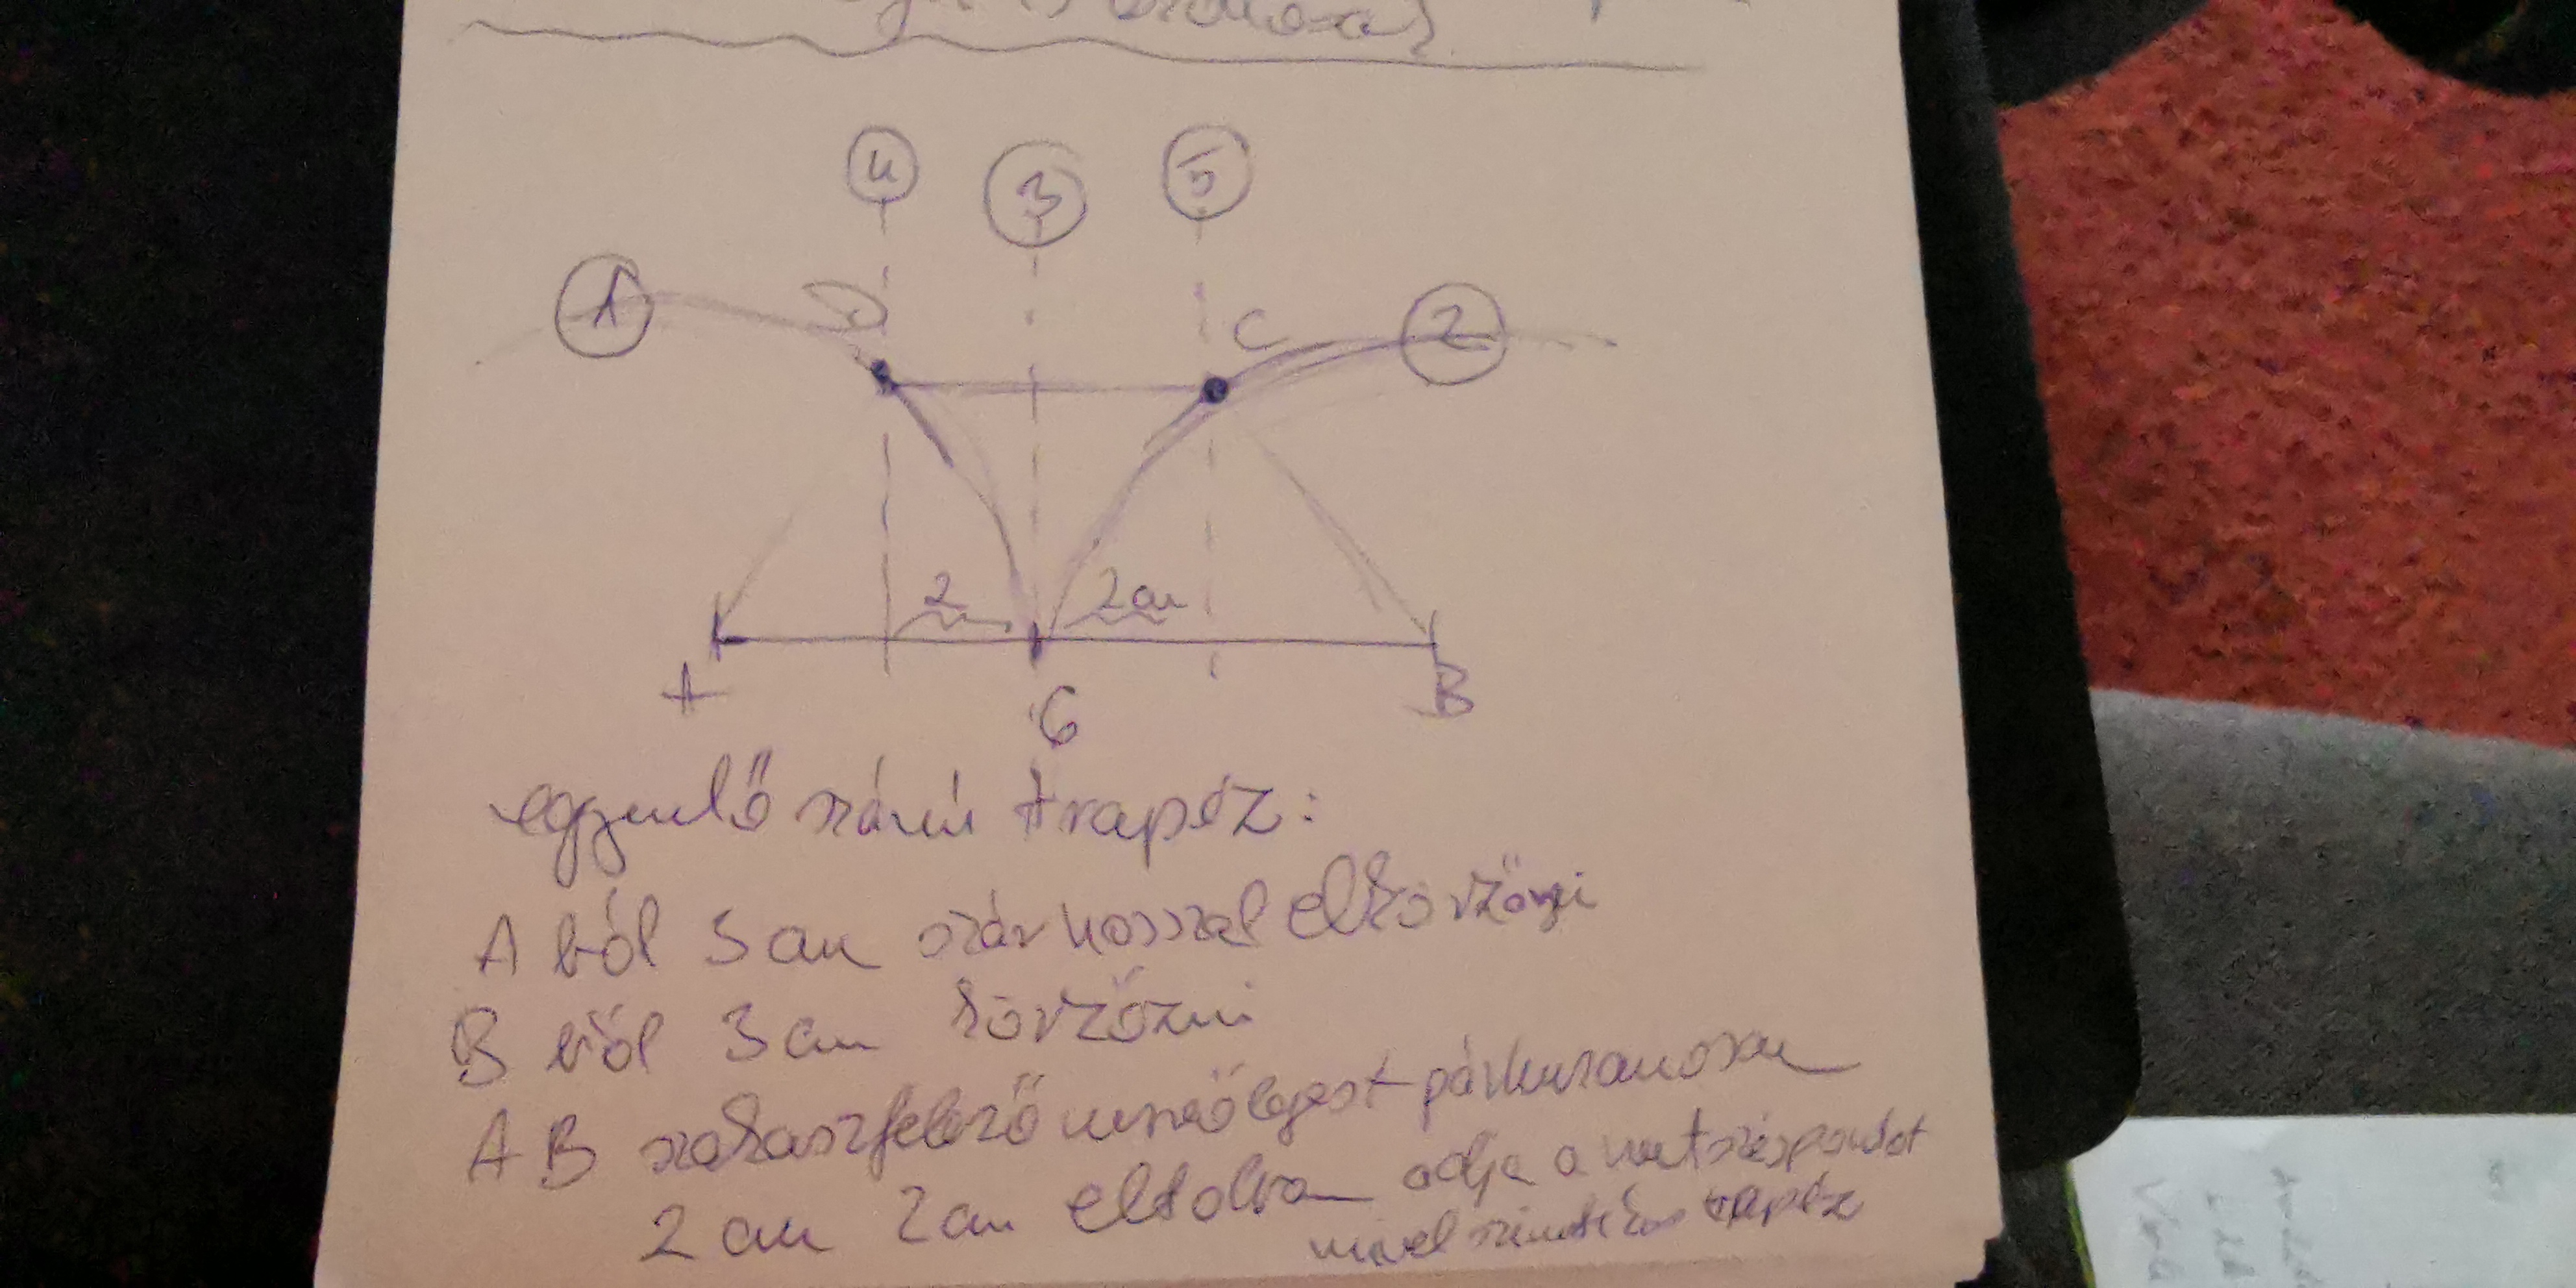 4 3 5
1 D C 2
2 2 cm
A 6 B
egyenlő szárú trapéz:
A ból 3 cm szár hosszal elkörzőzni
B ből 3 cm körzőzni
AB szakaszfelező merőlegest párhuzamosan
2 cm 2 cm eltolva adja a metszéspontot
mivel trapéz